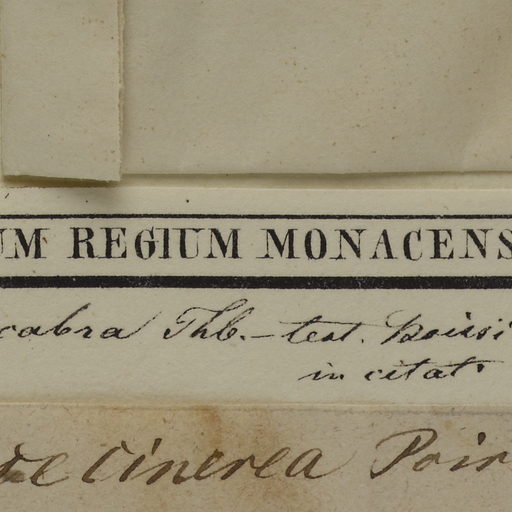 UM REGIUM MONACENS
cabra Thb. – test. Boissi
in citat.
cinerea Poir